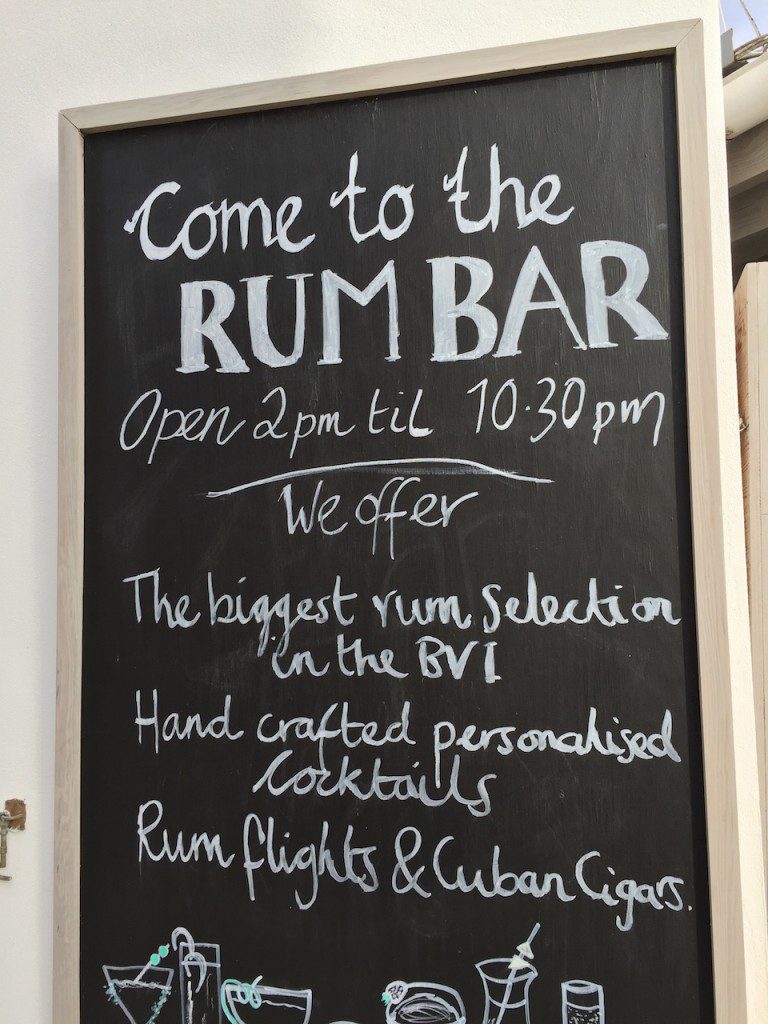 Come to the
RUM BAR
Open 2pm til 10.30pm
We offer
The biggest rum selection
in the BVI
Hand crafted personalised
Cocktails
Rum flights & Cuban Cigars.